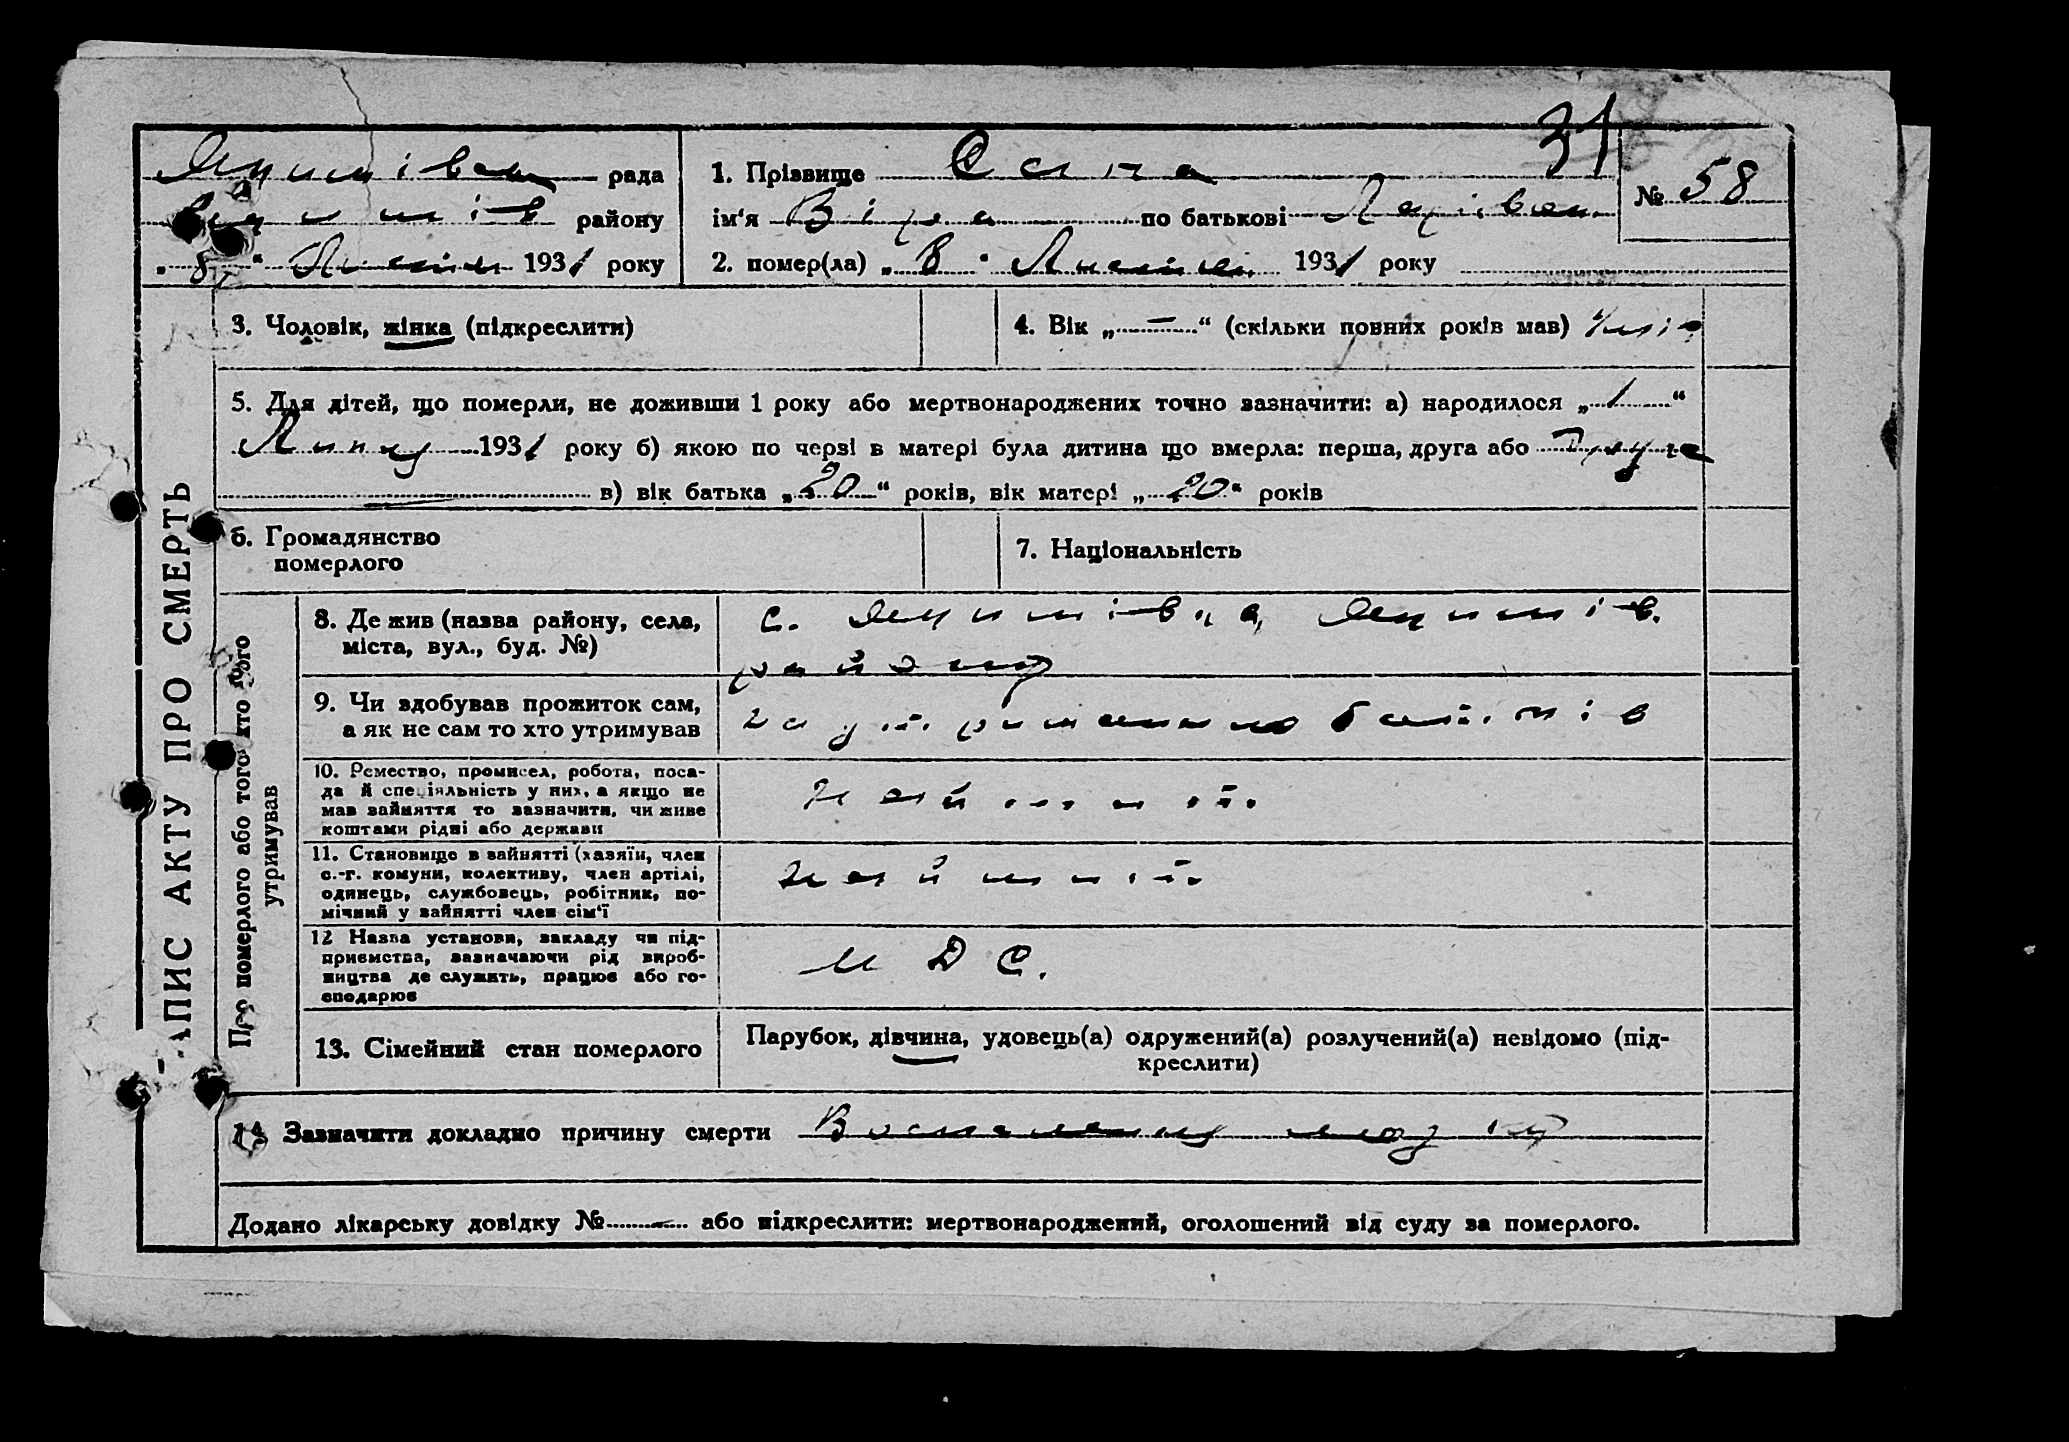 31
Яцимівська рада
1. Прізвище Сапа
№ 58
району
ім'я Віра по батькові
„8“ 1931 року
2. помер(ла) „8“ 1931 року
3. Чоловік, жінка (підкреслити)
4. Вік „—“ (скільки повних років мав)
5. Для дітей, що померли, не доживши 1 року або мертвонароджених точно зазначити: а) народилося „1“
Липня 1931 року б) якою по черзі в матері була дитина що вмерла: перша, друга або Друга
в) вік батька „20“ років, вік матері „20“ років
6. Громадянство
померлого
7. Національність
ЗАПИС АКТУ ПРО СМЕРТЬ
Про померлого або того хто його
утримував
8. Де жив (назва району, села,
міста, вул., буд. №)
с.
району
9. Чи здобував прожиток сам,
а як не сам то хто утримував
на утриманню батьків
10. Ремество, промисел, робота, поса-
да й спеціяльність у них, а якщо не
мав зайняття то зазначити, чи живе
коштами рідні або держави
11. Становище в зайнятті (хазяїн, член
с.-г. комуни, колективу, член артілі,
одинець, службовець, робітник, по-
мічний у зайнятті член сім'ї
12 Назва установи, закладу чи під-
приємства, зазначаючи рід вироб-
ництва де служить, працює або го-
сподарює
М Д С.
13. Сімейний стан померлого
Парубок, дівчина, удовець(а) одружений(а) розлучений(а) невідомо (під-
креслити)
14 Зазначити докладно причину смерти
Додано лікарську довідку №— або підкреслити: мертвонароджений, оголошений від суду за померлого.